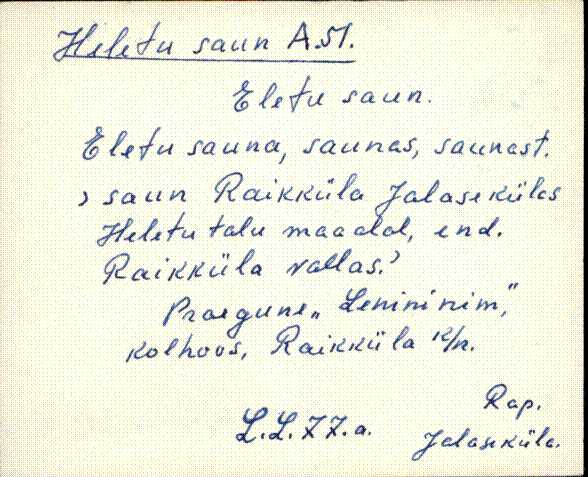 Heletu saun A.51.
Eletu saun.
Eletu sauna, saunas, saunast.
› saun Raikküla Jalasekülas
Heletu talu maadal, end.
Raikküla vallas.›
Praegune „Lenininim,"
kolhoos, Raikküla k/n.
Rap.
L.L. 77.a. Jalaseküla.